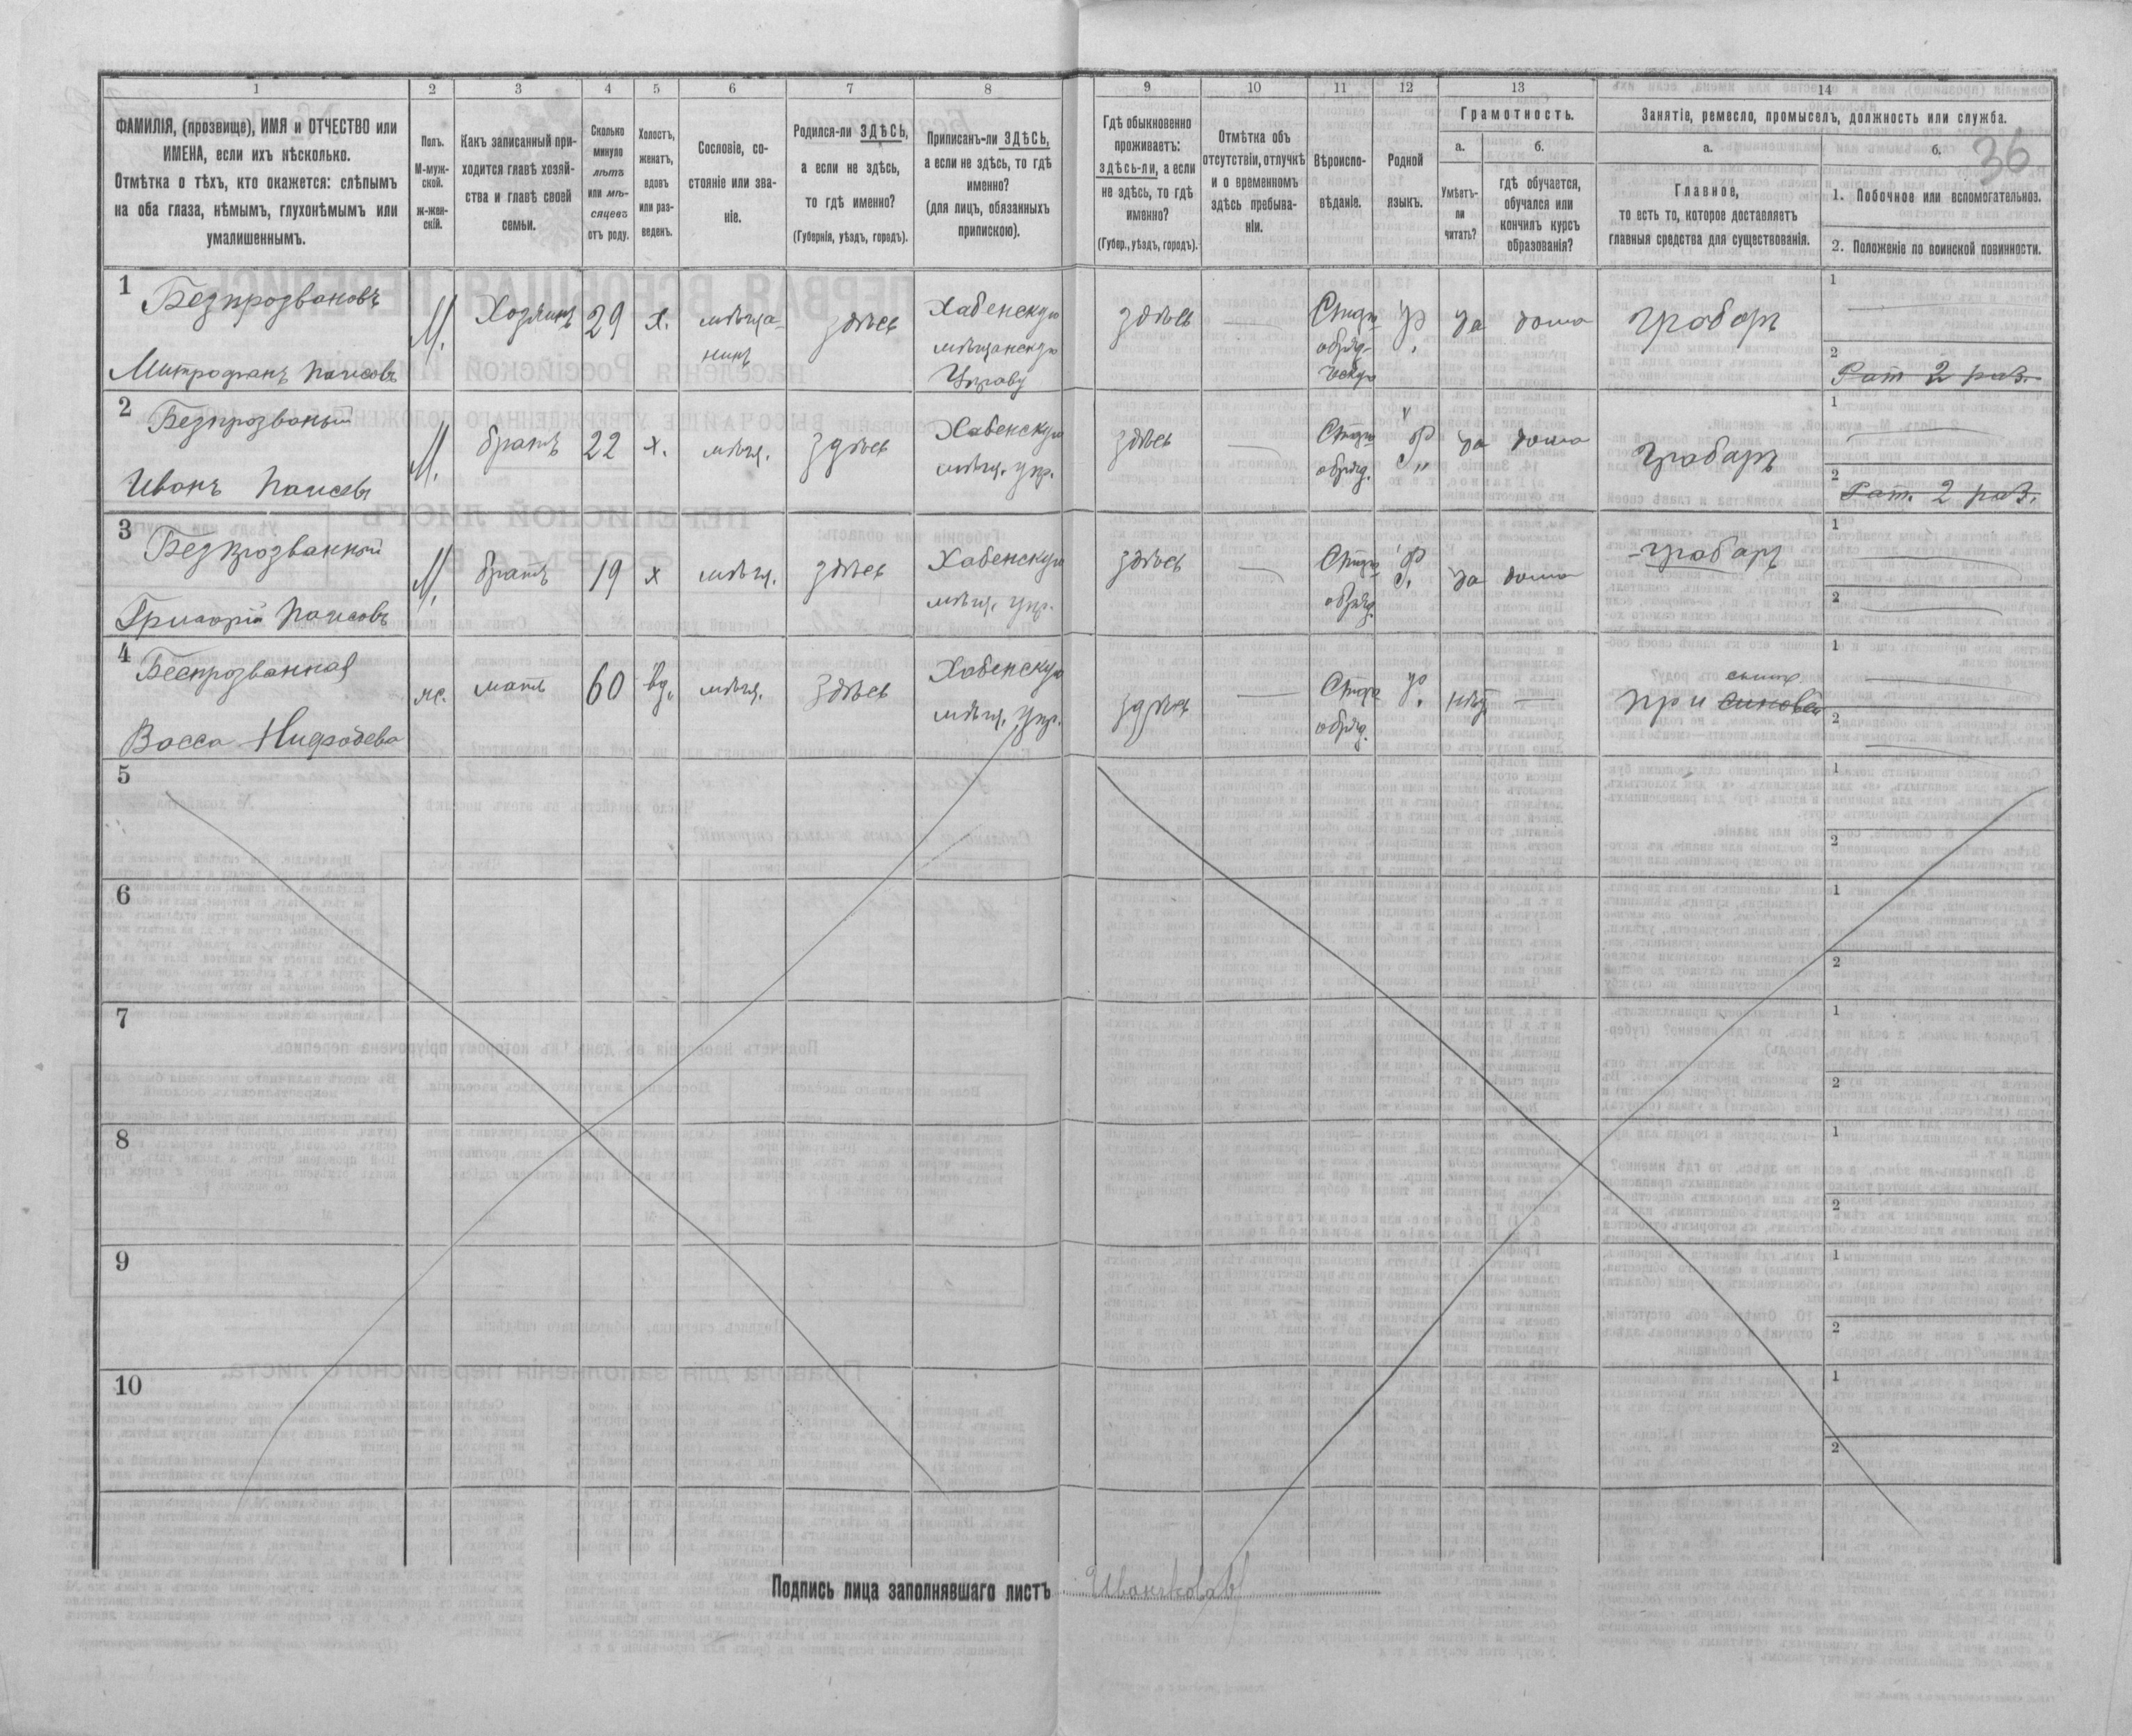 1 2 3 4 5 6 7 8 9 10 11 12 13 14
ФАМИЛІЯ, (прозвище), ИМЯ и ОТЧЕСТВО или
ИМЕНА, если ихъ нѣсколько.
Отмѣтка о тѣхъ, кто окажется: слѣпымъ
на оба глаза, нѣмымъ, глухонѣмымъ или
умалишеннымъ.
Полъ.
М-муж-
ской.
ж-жен-
скій.
Какъ записанный при-
ходится главѣ хозяй-
ства и главѣ своей
семьи.
Сколько
минуло
лѣтъ
или мѣ-
сяцевъ
отъ роду.
Холостъ,
женатъ,
вдовъ
или раз-
веденъ.
Сословіе, со-
стояніе или зва-
ніе.
Родился-ли ЗДѢСЬ,
а если не здѣсь,
то гдѣ именно?
(Губернія, уѣздъ, городъ).
Приписанъ-ли ЗДѢСЬ,
а если не здѣсь, то гдѣ
именно?
(для лицъ, обязанныхъ
припискою).
Гдѣ обыкновенно
проживаетъ:
здѣсь-ли, а если
не здѣсь, то гдѣ
именно?
(Губер., уѣздъ, городъ).
Отмѣтка объ
отсутствіи, отлучкѣ
и о временномъ
здѣсь пребыва-
ніи.
Вѣроиспо-
вѣданіе.
Родной
языкъ.
Грамотность.
а.
Умѣетъ-
ли
читать?
б.
гдѣ обучается,
обучался или
кончилъ курсъ
образованія?
Занятіе, ремесло, промыселъ, должность или служба.
а.
Главное,
то есть то, которое доставляетъ
главныя средства для существованія.
б.
36
1. Побочное или вспомогательное.
2. Положеніе по воинской повинности.
1
Безпрозвановъ
Митрофанъ Паисовъ
М.
Хозяинъ
29
х.
мѣща-
нинъ
здѣсь
Хабенскую
мѣщанскую
Управу
здѣсь
Старо
обряд-
ческую
р.
да
дома
грабарь
1
2
Рат 2 раз.
2
Безпрозваный
Иванъ Паисовъ
М.
братъ
22
х.
мѣщ.
здѣсь
Хабенскую
мѣщ. упр.
здѣсь
Старо
обряд.
р.
да
дома
грабарь
1
2
Рат. 2 раз.
3
Безпрозванный
Григорій Паисовъ
М.
братъ
19
х
мѣщ.
здѣсь
Хабенскую
мѣщ. упр.
здѣсь
Старо
обряд.
р.
да
дома
грабарь
1
2
4
Беспрозванная
Васса Нифодева
ж.
мать
60
вд.
мѣщ.
здѣсь
Хабенскую
мѣщ. упр.
здѣсь
Старо
обряд.
р.
нѣт
сынъ
при сыновей
1
2
5
1
2
6
1
2
7
1
2
8
1
2
9
1
2
10
1
2
Подпись лица заполнявшаго листъ